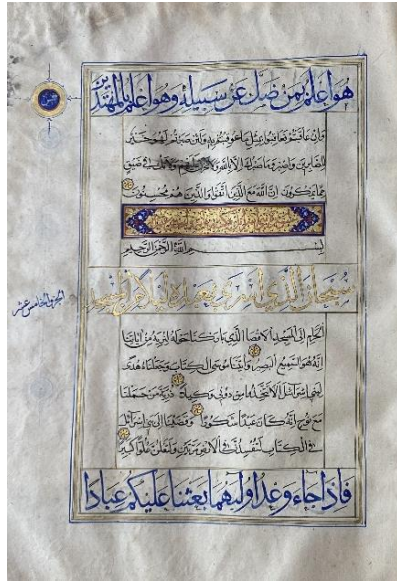 هُوَ اَعْلَمُ بِمَنْ ضَلَّ عَنْ سَبِيلِهِ وَهُوَ اَعْلَمُ بِالْمُهْتَدِينَ
وَاِنْ عَاقَبْتُمْ فَعَاقِبُوا بِمِثْلِ مَا عُوقِبْتُمْ بِهِ وَلَئِنْ صَبَرْتُمْ لَهُوَ خَيْرٌ
لِلصَّابِرِينَ وَاصْبِرْ وَمَا صَبْرُكَ اِلَّا بِاللَّهِ وَلَا تَحْزَنْ عَلَيْهِمْ وَلَا تَكُ فِي ضَيْقٍ
مِمَّا يَمْكُرُونَ اِنَّ اللَّهَ مَعَ الَّذِينَ اتَّقَوْا وَالَّذِينَ هُمْ مُحْسِنُونَ
بِسْمِ اللَّهِ الرَّحْمَنِ الرَّحِيمِ
سُبْحَانَ الَّذِي اَسْرَى بِعَبْدِهِ لَيْلًا مِنَ الْمَسْجِدِ
الجزو الخامس عشر
الْحَرَامِ اِلَى الْمَسْجِدِ الْاَقْصَا الَّذِي بَارَكْنَا حَوْلَهُ لِنُرِيَهُ مِنْ اٰيَاتِنَا
اِنَّهُ هُوَ السَّمِيعُ الْبَصِيرُ وَاٰتَيْنَا مُوسَى الْكِتَابَ وَجَعَلْنَاهُ هُدًى
لِبَنِي اِسْرَائِلَ اَلَّا تَتَّخِذُوا مِنْ دُونِي وَكِيلًا ذُرِّيَّةَ مَنْ حَمَلْنَا
مَعَ نُوحٍ اِنَّهُ كَانَ عَبْدًا شَكُورًا وَقَضَيْنَا اِلَى بَنِي اِسْرَائِلَ
فِي الْكِتَابِ لَتُفْسِدُنَّ فِي الْاَرْضِ مَرَّتَيْنِ وَلَتَعْلُنَّ عُلُوًّا كَبِيرًا
فَاِذَا جَاءَ وَعْدُ اُولٰيهُمَا بَعَثْنَا عَلَيْكُمْ عِبَادًا